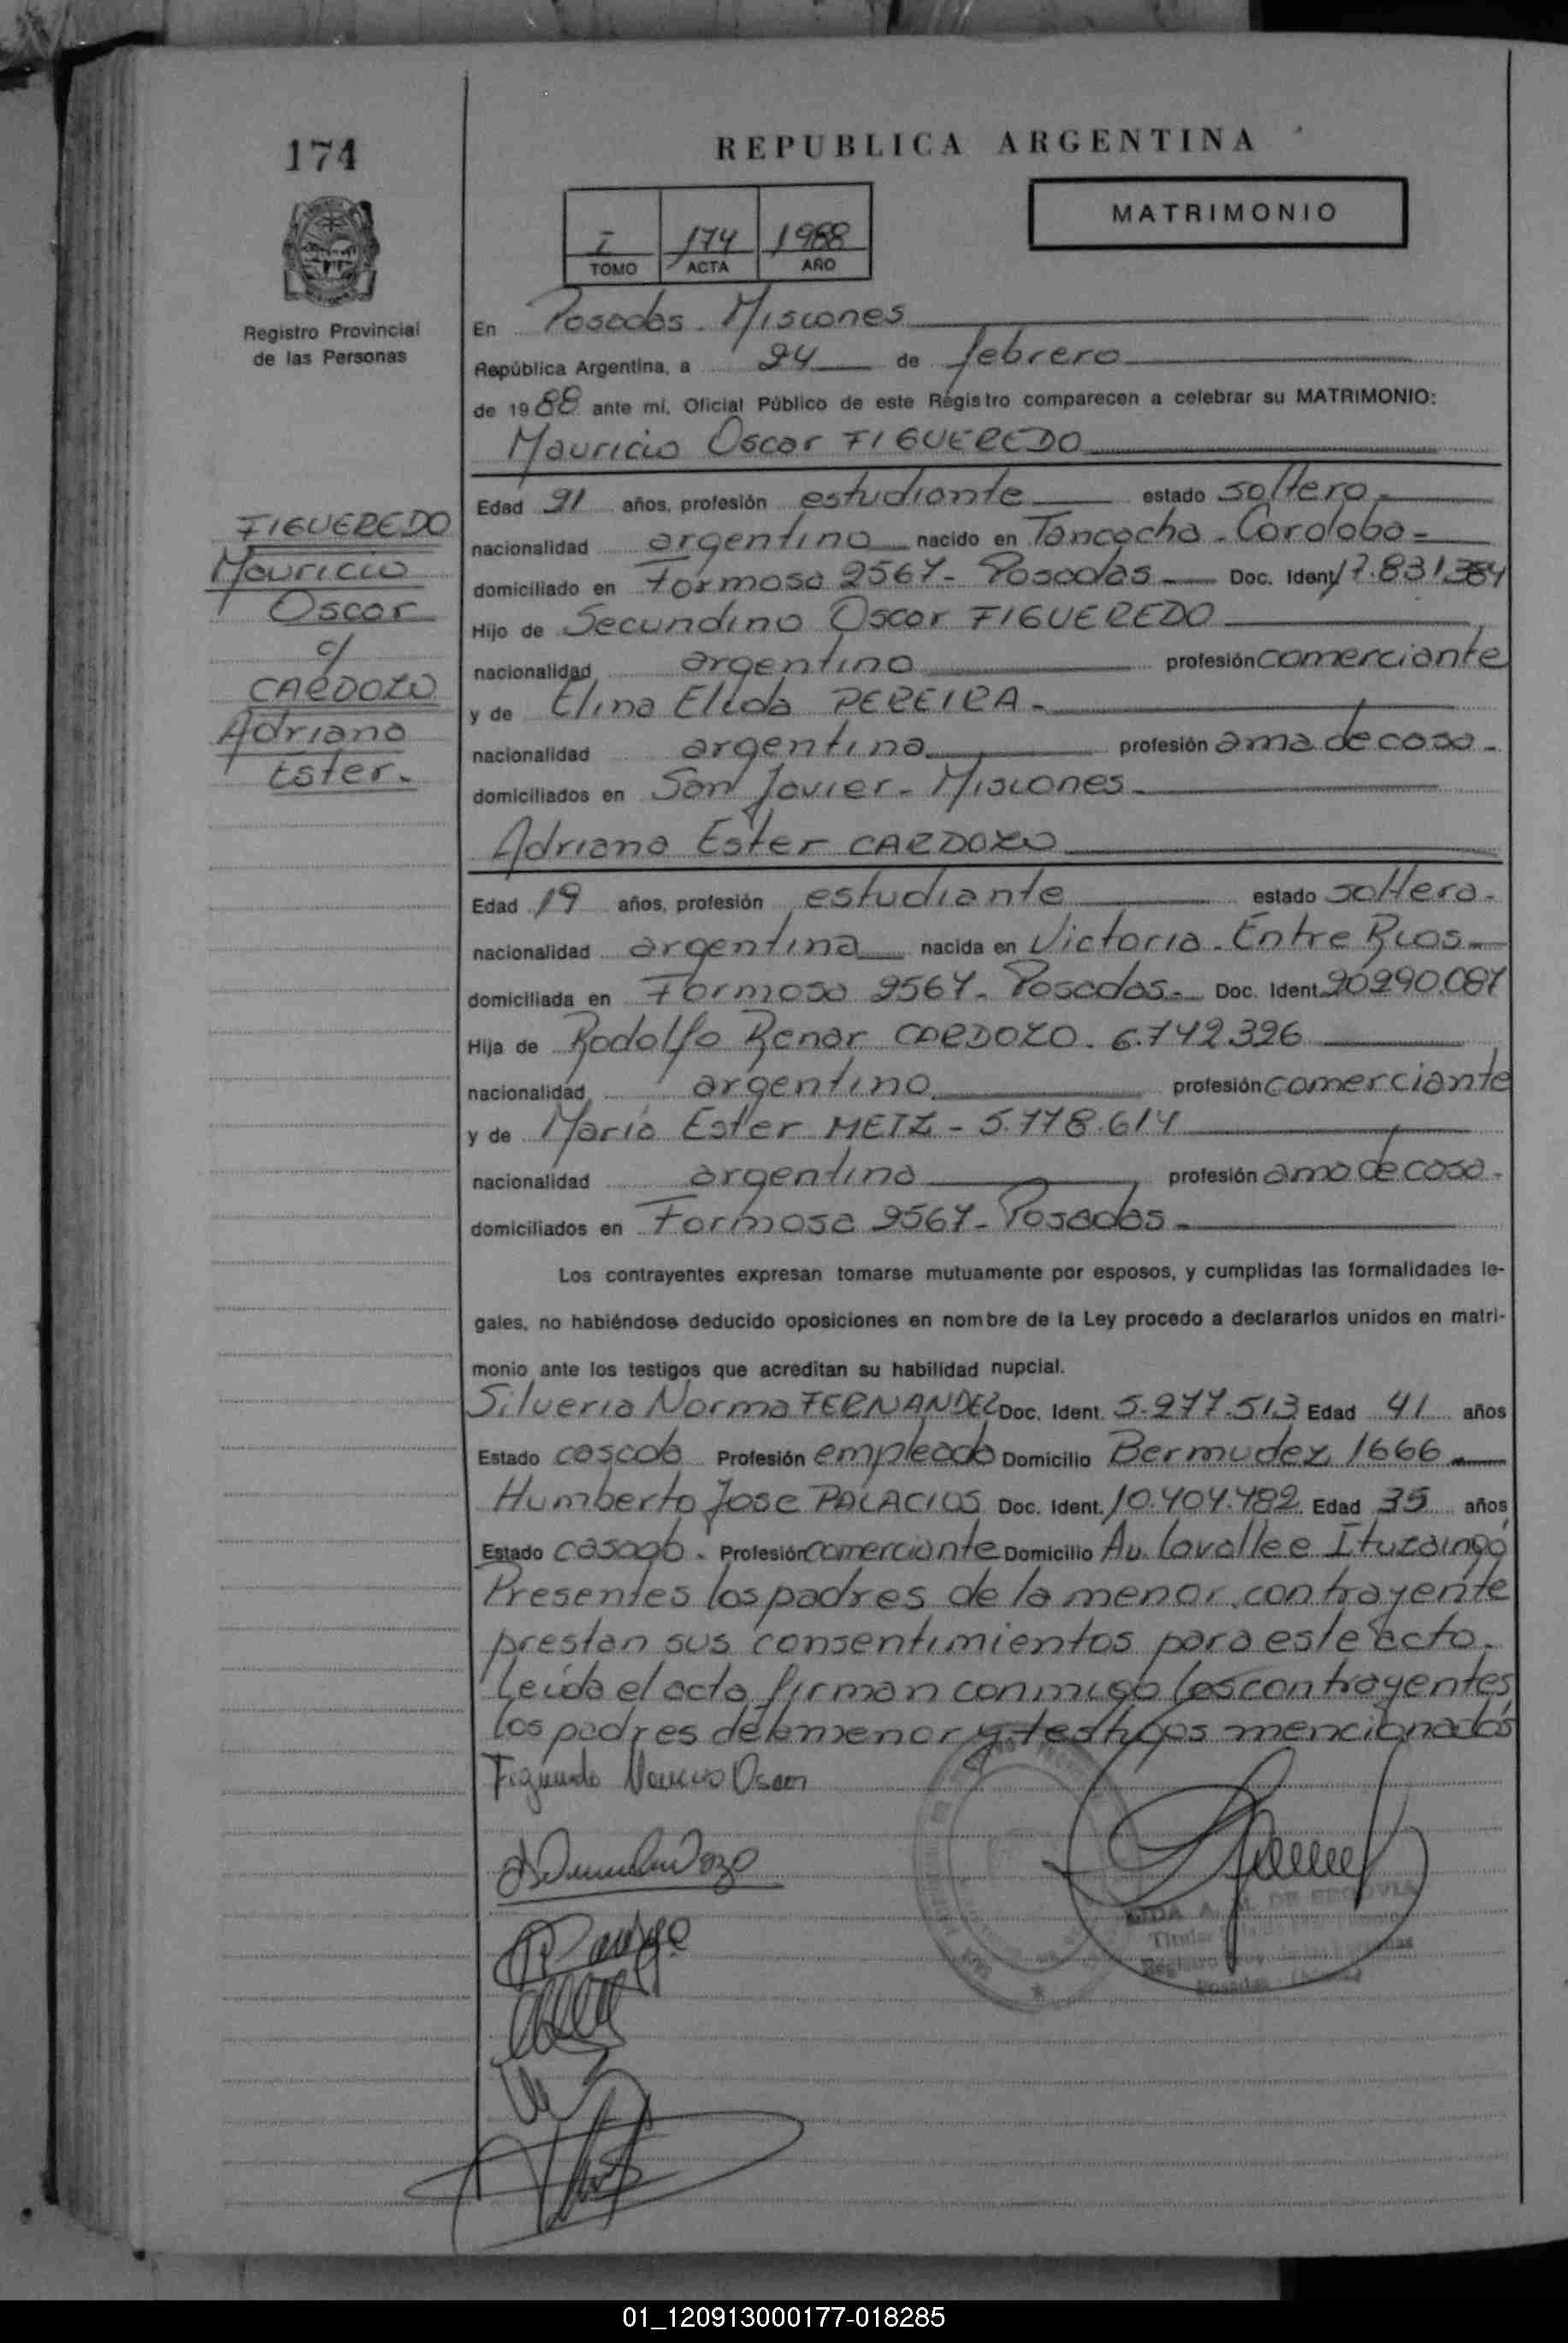 174
REPUBLICA ARGENTINA
MATRIMONIO
I 174 1988
TOMO ACTA AÑO
Registro Provincial
de las Personas
En Posadas - Misiones
República Argentina, a 24 de febrero
de 1988 ante mí, Oficial Público de este Registro comparecen a celebrar su MATRIMONIO:
Mauricio Oscar FIGUEREDO
FIGUEREDO
Mauricio
Oscar
c/
CARDOZO
Adriana
Ester.
Edad 21 años, profesión estudiante estado soltero
nacionalidad argentino nacido en Tancacha - Cordoba
domiciliado en Formosa 2567 - Posadas Doc. Ident 17.831.384
Hijo de Secundino Oscar FIGUEREDO
nacionalidad argentino profesión comerciante
y de Elina Elida PEREIRA
nacionalidad argentina profesión ama de casa
domiciliados en San Javier - Misiones
Adriana Ester CARDOZO
Edad 19 años, profesión estudiante estado soltera
nacionalidad argentina nacida en Victoria - Entre Rios
domiciliada en Formosa 2567 - Posadas Doc. Ident 20290.087
Hija de Rodolfo Renar CARDOZO. 6.742.326
nacionalidad argentino profesión comerciante
y de María Ester METZ - 5.778.614
nacionalidad argentina profesión ama de casa
domiciliados en Formosa 2567 - Posadas
Los contrayentes expresan tomarse mutuamente por esposos, y cumplidas las formalidades le-
gales, no habiéndose deducido oposiciones en nombre de la Ley procedo a declararlos unidos en matri-
monio ante los testigos que acreditan su habilidad nupcial.
Silveria Norma FERNANDEZ Doc. Ident. 5.277.513 Edad 41 años
Estado casada Profesión empleada Domicilio Bermudez 1666
Humberto Jose PALACIOS Doc. Ident. 10.404.482 Edad 35 años
Estado casado Profesión comerciante Domicilio Av. Lavalle e Ituzaingó
Presentes los padres de la menor contrayente
prestan sus consentimientos para este acto.
Leída el acta firman conmigo los contrayentes
los padres de la menor y testigos mencionados
Figueredo Mauricio Oscar
A. M. DE SEGOVIA
Titular
Registro Prov. de las Personas
Posadas
01_120913000177-018285